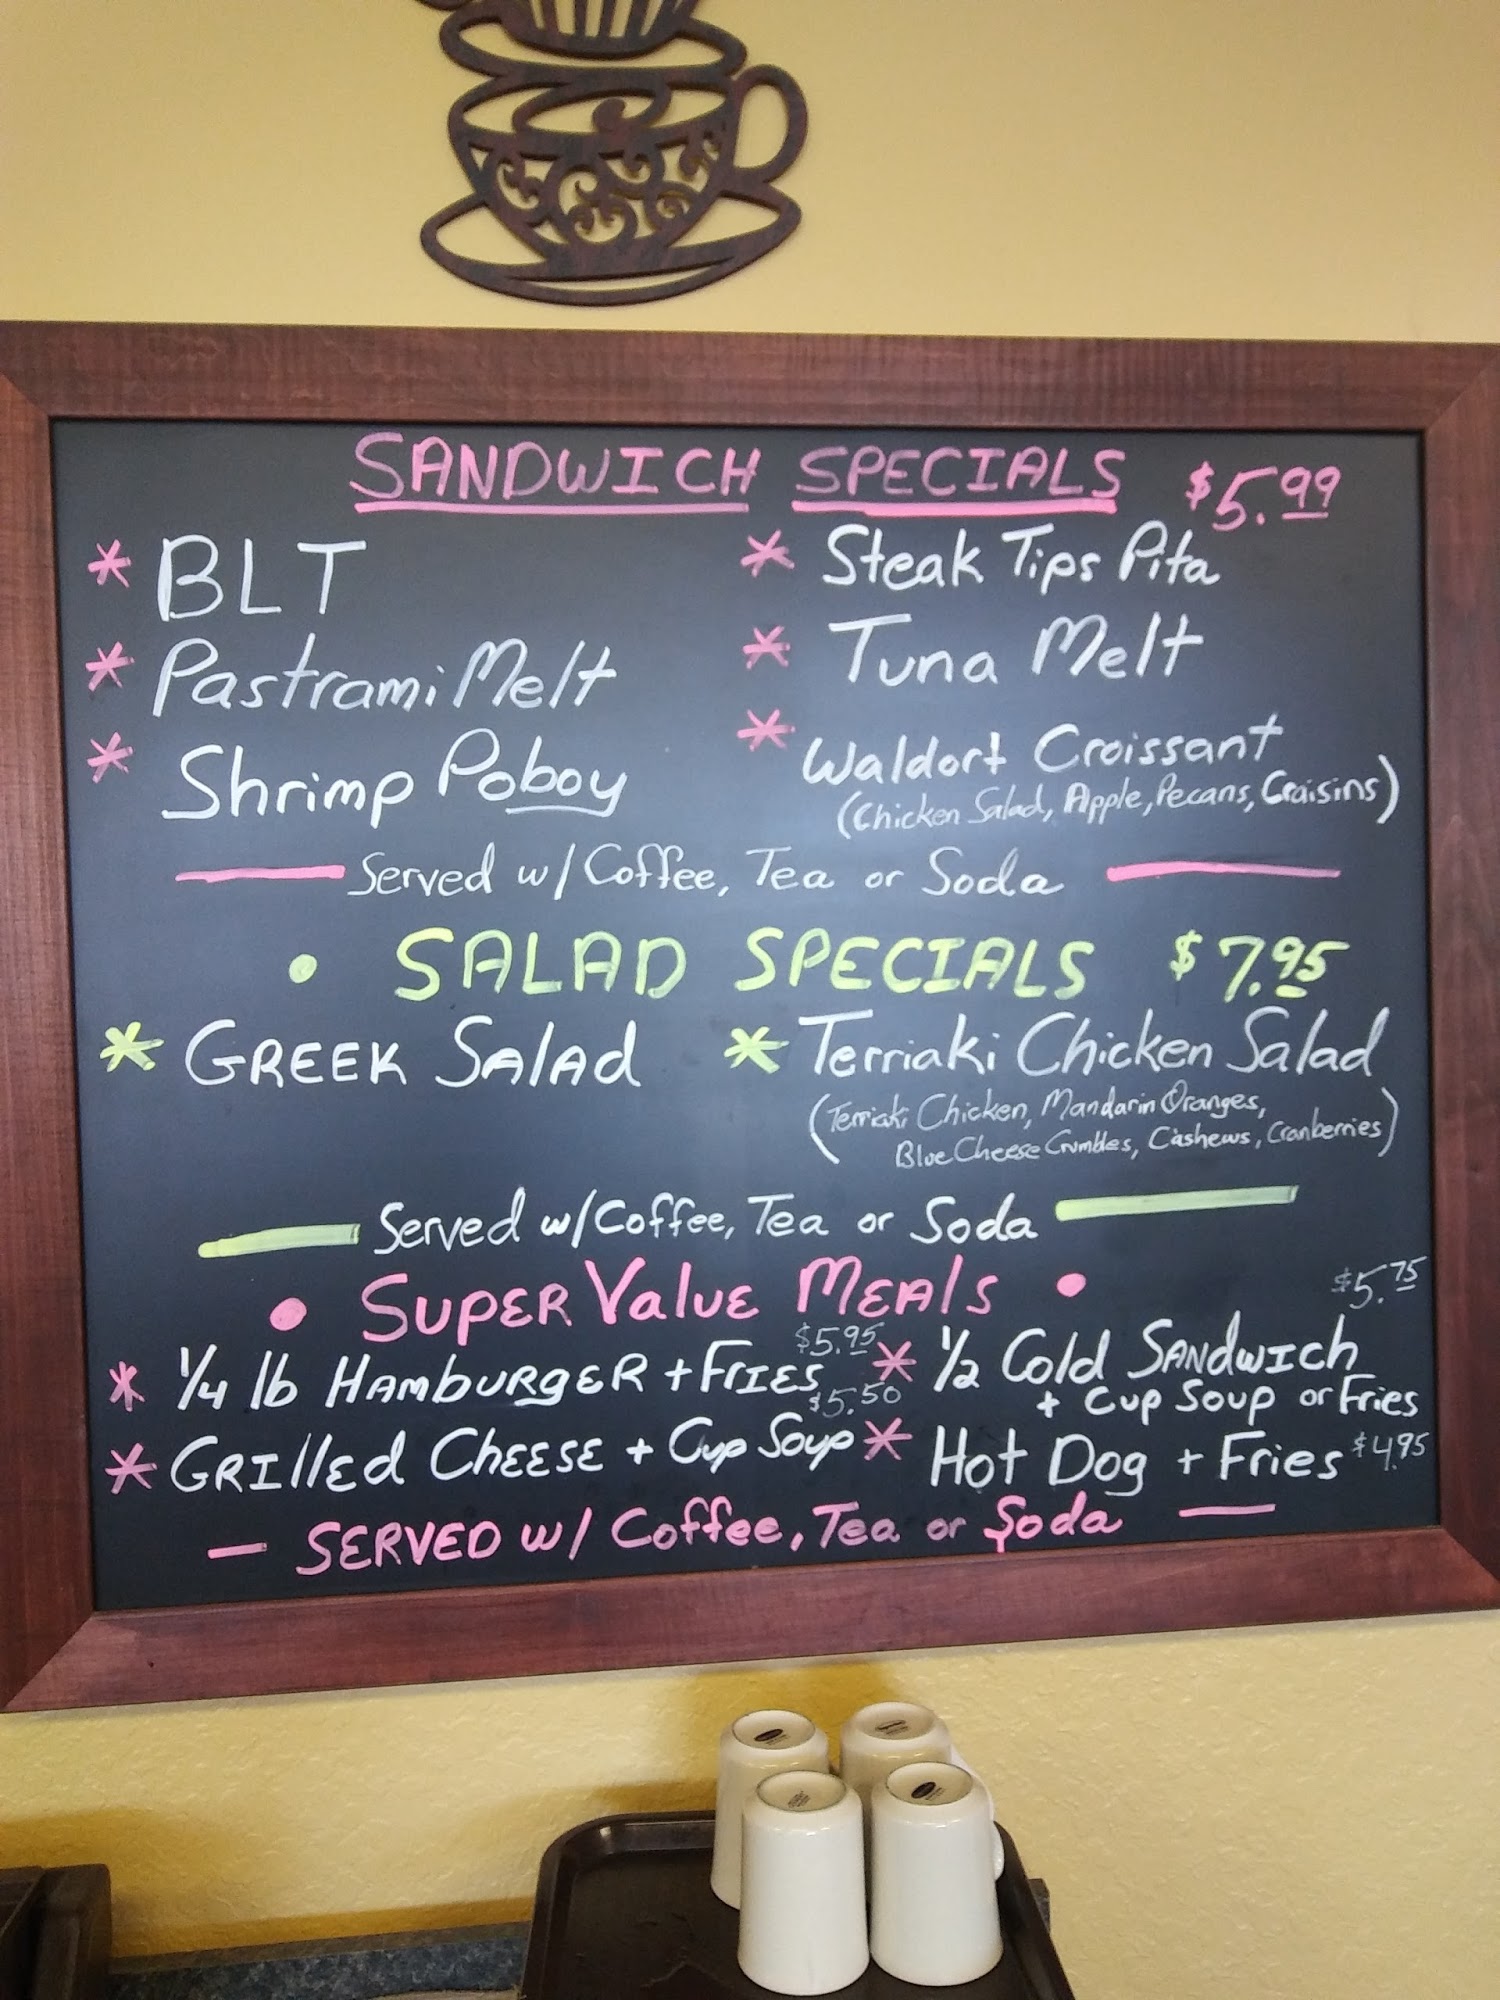 SANDWICH SPECIALS $5.99
* BLT
* Steak Tips Pita
* Pastrami Melt
* Tuna Melt
* Shrimp Poboy
* Waldorf Croissant
(Chicken Salad, Apple, Pecans, Craisins)
Served w/ Coffee, Tea or Soda
• SALAD SPECIALS $7.95
* GREEK SALAD
* Terriaki Chicken Salad
(Terriaki Chicken, Mandarin Oranges,
Blue Cheese Crumbles, Cashews, Cranberries)
Served w/ Coffee, Tea or Soda
• SUPER VALUE MEALS •
* 1/4 lb HAMBURGER + FRIES $5.95
* 1/2 Cold SANDWICH $5.75
+ Cup Soup or Fries
* GRILLED CHEESE + Cup Soup $5.50
* Hot Dog + Fries $4.95
— SERVED w/ Coffee, Tea or Soda —